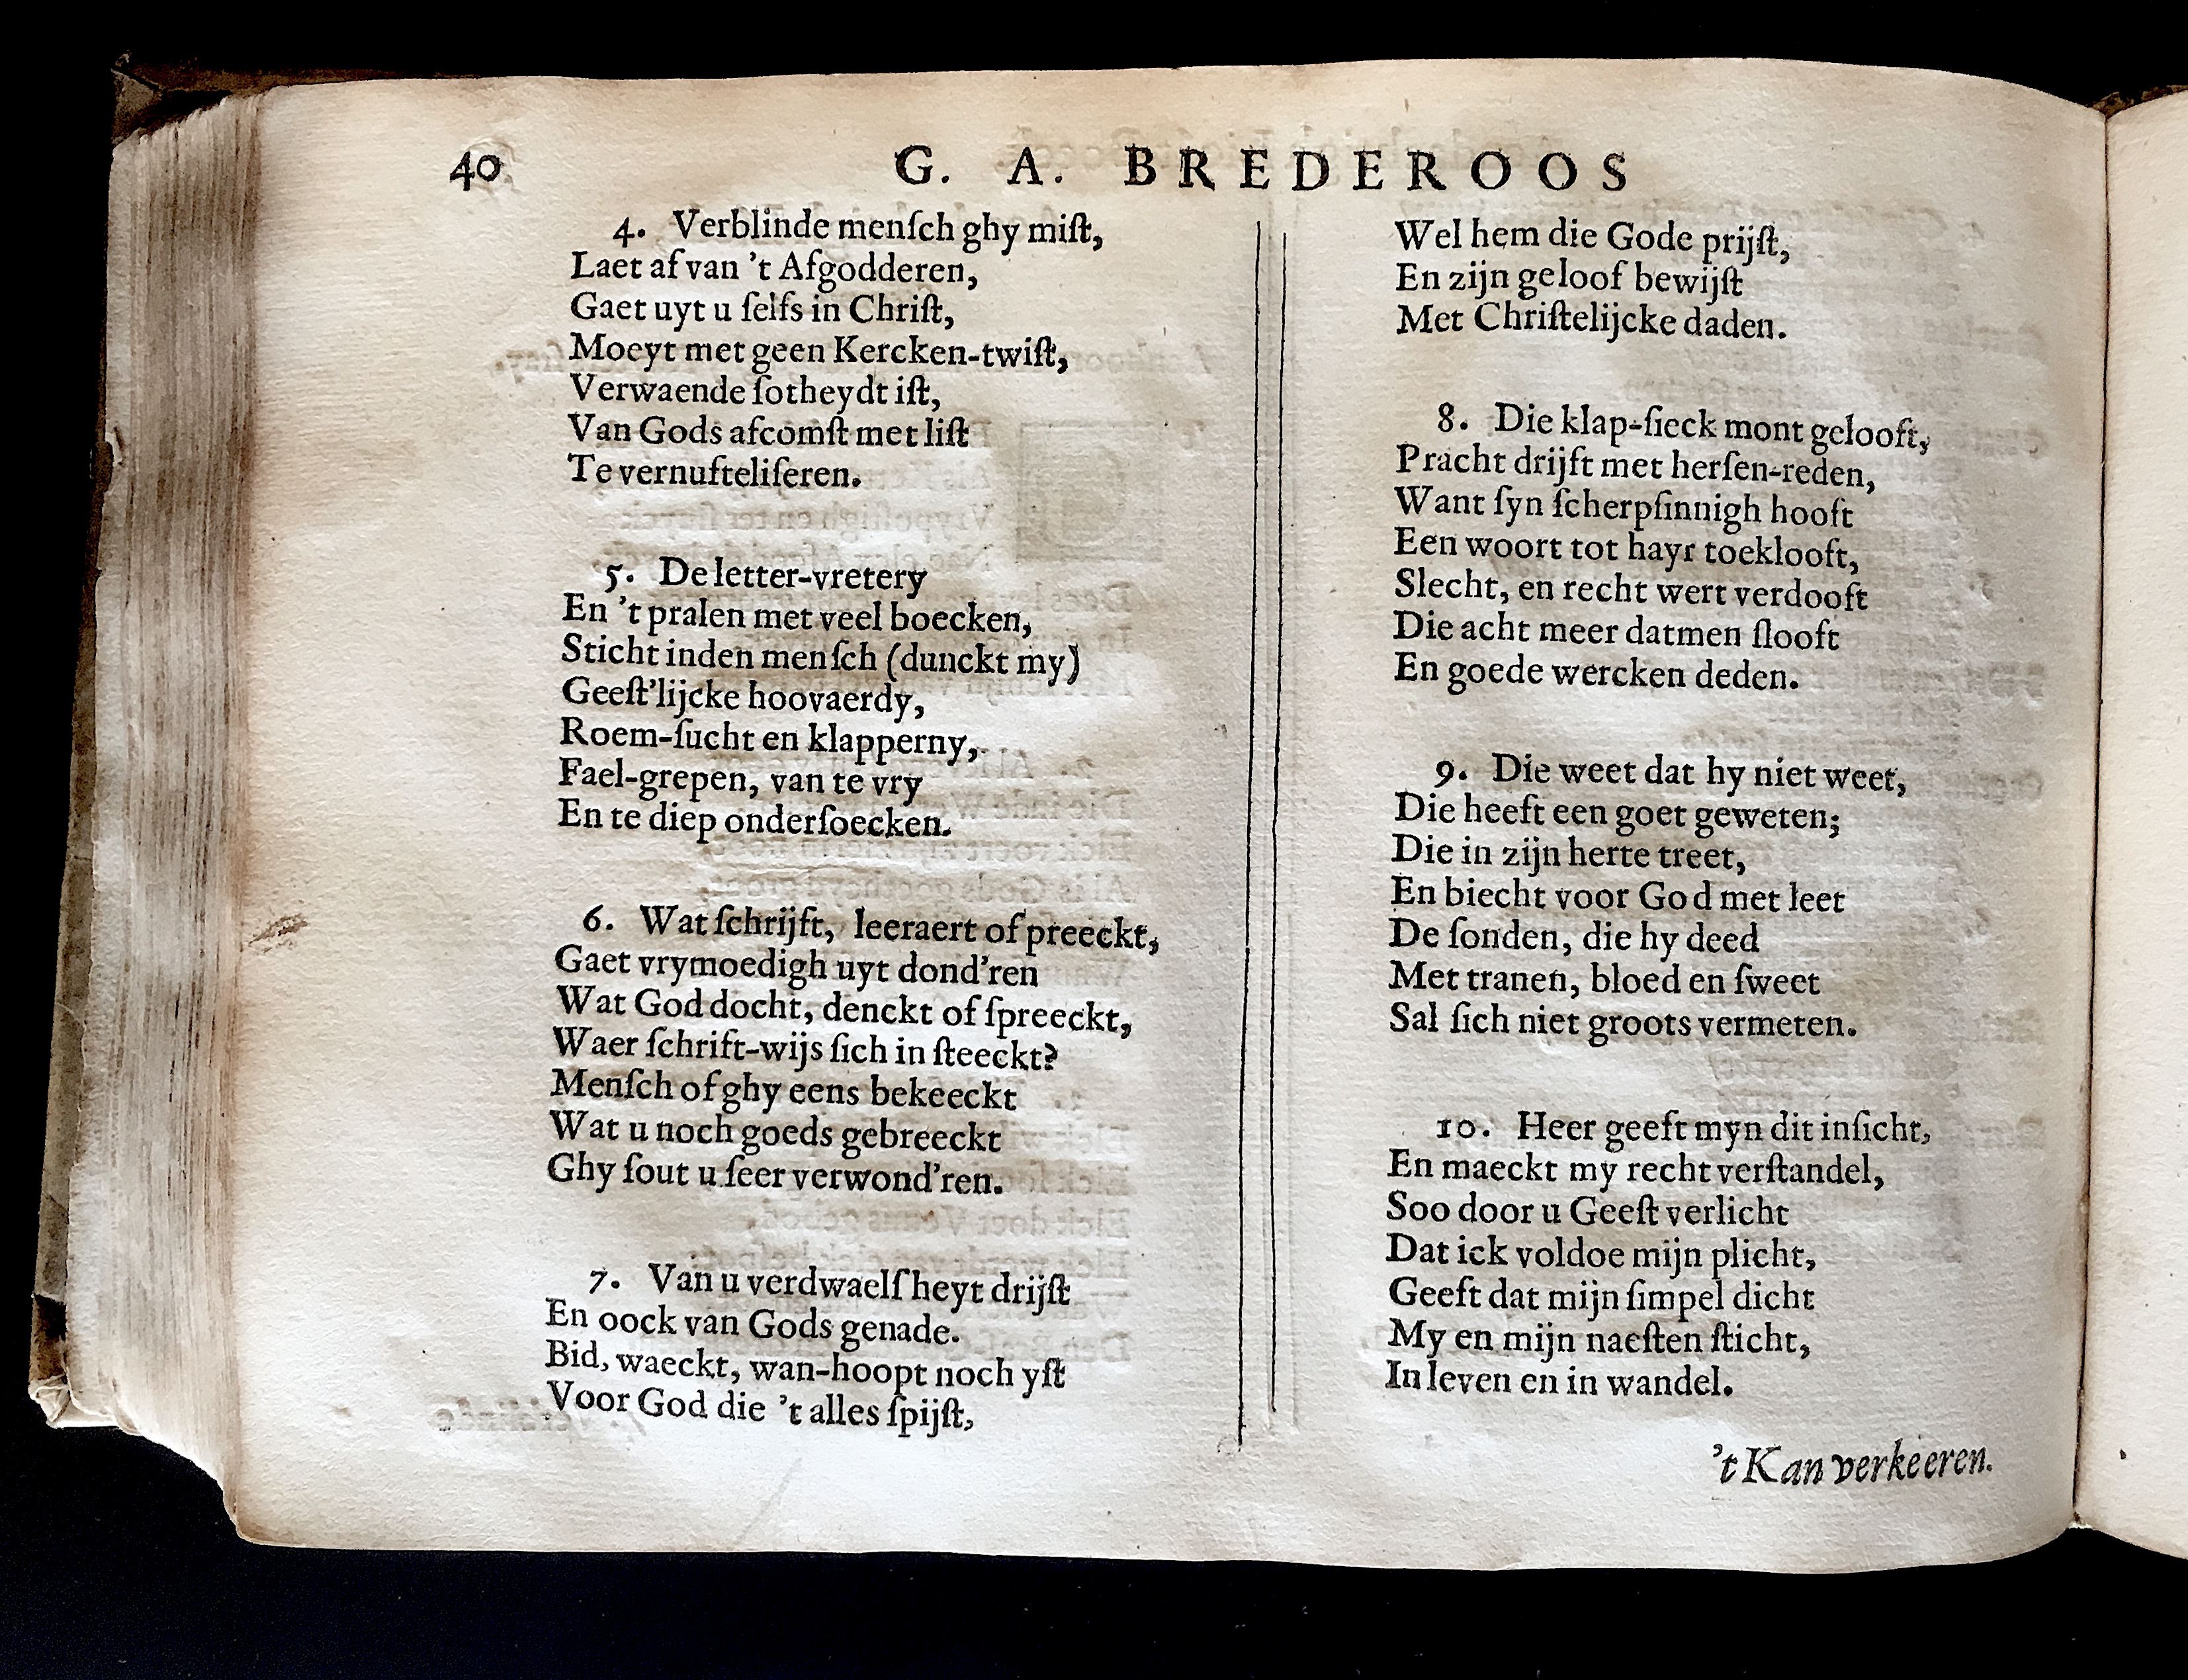 40
G. A. BREDEROOS
4. Verblinde menſch ghy miſt,
Laet af van 't Afgodderen,
Gaet uyt u ſelfs in Chriſt,
Moeyt met geen Kercken-twiſt,
Verwaende ſotheydt iſt,
Van Gods afcomſt met liſt
Te vernufteliſeren.
5. De letter-vretery
En 't pralen met veel boecken,
Sticht inden menſch (dunckt my)
Geeſt'lijcke hoovaerdy,
Roem-ſucht en klapperny,
Fael-grepen, van te vry
En te diep onderſoecken.
6. Wat ſchrijft, leeraert of preeckt,
Gaet vrymoedigh uyt dond'ren
Wat God docht, denckt of ſpreeckt,
Waer ſchrift-wijs ſich in ſteeckt?
Menſch of ghy eens bekeeckt
Wat u noch goeds gebreeckt
Ghy ſout u ſeer verwond'ren.
7. Van u verdwaelſheyt drijſt
En oock van Gods genade.
Bid, waeckt, wan-hoopt noch yſt
Voor God die 't alles ſpijſt,
Wel hem die Gode prijſt,
En zijn geloof bewijſt
Met Chriſtelijcke daden.
8. Die klap-ſieck mont gelooft,
Pracht drijft met herſen-reden,
Want ſyn ſcherpſinnigh hooft
Een woort tot hayr toeklooft,
Slecht, en recht wert verdooft
Die acht meer datmen ſlooft
En goede wercken deden.
9. Die weet dat hy niet weet,
Die heeft een goet geweten;
Die in zijn herte treet,
En biecht voor God met leet
De ſonden, die hy deed
Met tranen, bloed en ſweet
Sal ſich niet groots vermeten.
10. Heer geeft myn dit inſicht,
En maeckt my recht verſtandel,
Soo door u Geeſt verlicht
Dat ick voldoe mijn plicht,
Geeft dat mijn ſimpel dicht
My en mijn naeſten ſticht,
In leven en in wandel.
't Kan verkeeren.